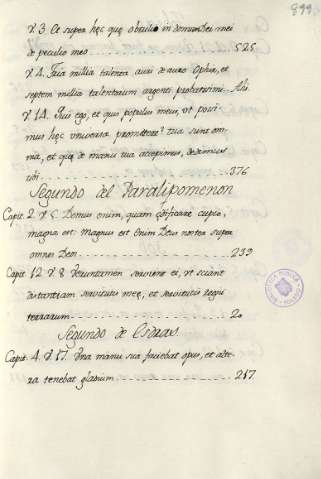 899.
V. 3. Et super hęc quę obtuli in domum Dei mei
de peculio meo 525
V. 4. Tria millia talenta auri de auro Ophir, et
septem millia talentorum argenti probatissimi. Ibi.
V. 14. Quis ego, et quis populus meus, ut possi-
mus hęc universa promittere? Tua sunt om-
nia, et quę de manu tua accepimus, dedimus
tibi 376
Segundo del Paralipomenon
Capit. 2. V. 5. Domus enim, quam ędificare cupio,
magna est: Magnus est enim Deus noster super
omnes Deos 239
Capit. 12. V. 8. Veruntamen servient ei, ut sciant
distantiam servitutis meę, et servitutis regni
terrarum 20
Segundo de Esdras
Capit. 4. V. 17. Una manu sua faciebat opus, et alte-
ra tenebat gladium 217.